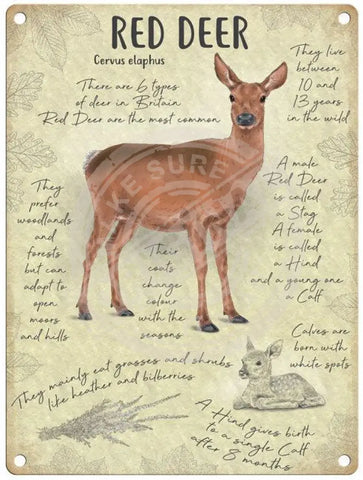 RED DEER
Cervus elaphus
There are 6 types
of deer in Britain
Red Deer are the most common
They live
between
10 and
13 years
in the wild
A male
Red Deer
is called
a Stag
A female
is called
a Hind
and a young one
a Calf
They
prefer
woodlands
and
forests
but can
adapt to
open
moors
and hills
Their
coats
change
colour
with the
seasons
Calves are
born with
white spots
They mainly eat grasses and shrubs
like heather and bilberries
A Hind gives birth
to a single Calf
after 8 months